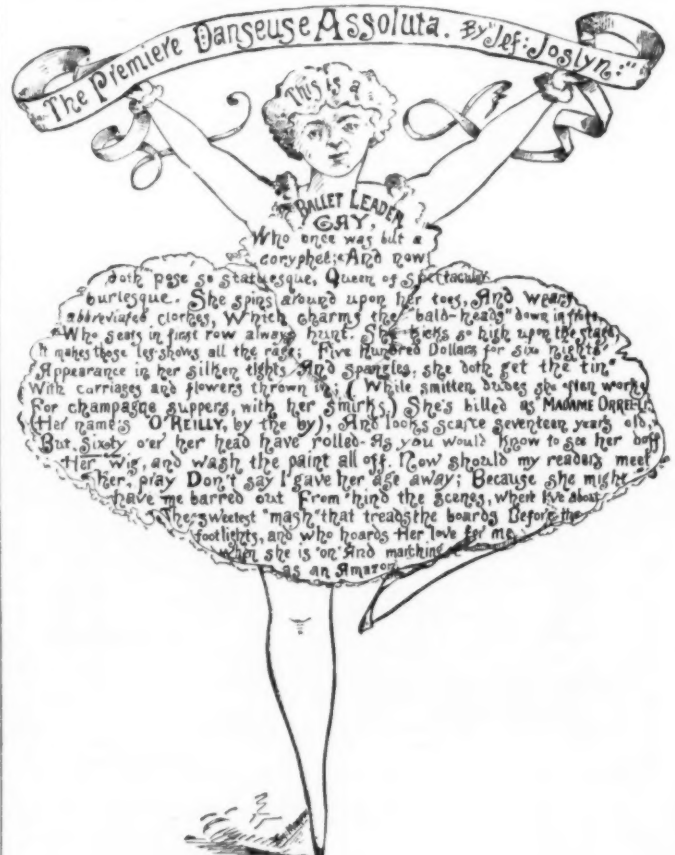 The Premiere Danseuse Assoluta. By "Jef: Joslyn:"
This is a
BALLET LEADER
GAY,
Who once was but a
coryphee; And now
doth pose so statuesque, Queen of spectacular
burlesque. She spins around upon her toes, And wears
abbreviated clothes, Which charms the "bald-heads" down in front,
Who seats in first row always hunt. She kicks so high upon the stage,
It makes those leg-shows all the rage; Five Hundred Dollars for six nights'
Appearance in her silken tights And spangles, she doth get the "tin"
With carriages and flowers thrown in; (While smitten dudes she often works
For champagne suppers, with her smirks.) She's billed as "MADAME
(Her name is O'REILLY, by the by), And looks scarce seventeen years old,
But, sixty o'er her head have rolled- As you would know to see her doff
Her wig, and wash the paint all off. Now should my readers meet
her, pray Don't say I gave her age away; Because she might
have me barred out From 'hind the scenes, where I've about
The sweetest "mash" that treads the boards Before the
footlights, and who hoards Her love for me
when she is 'on' And marching
as an Amazon